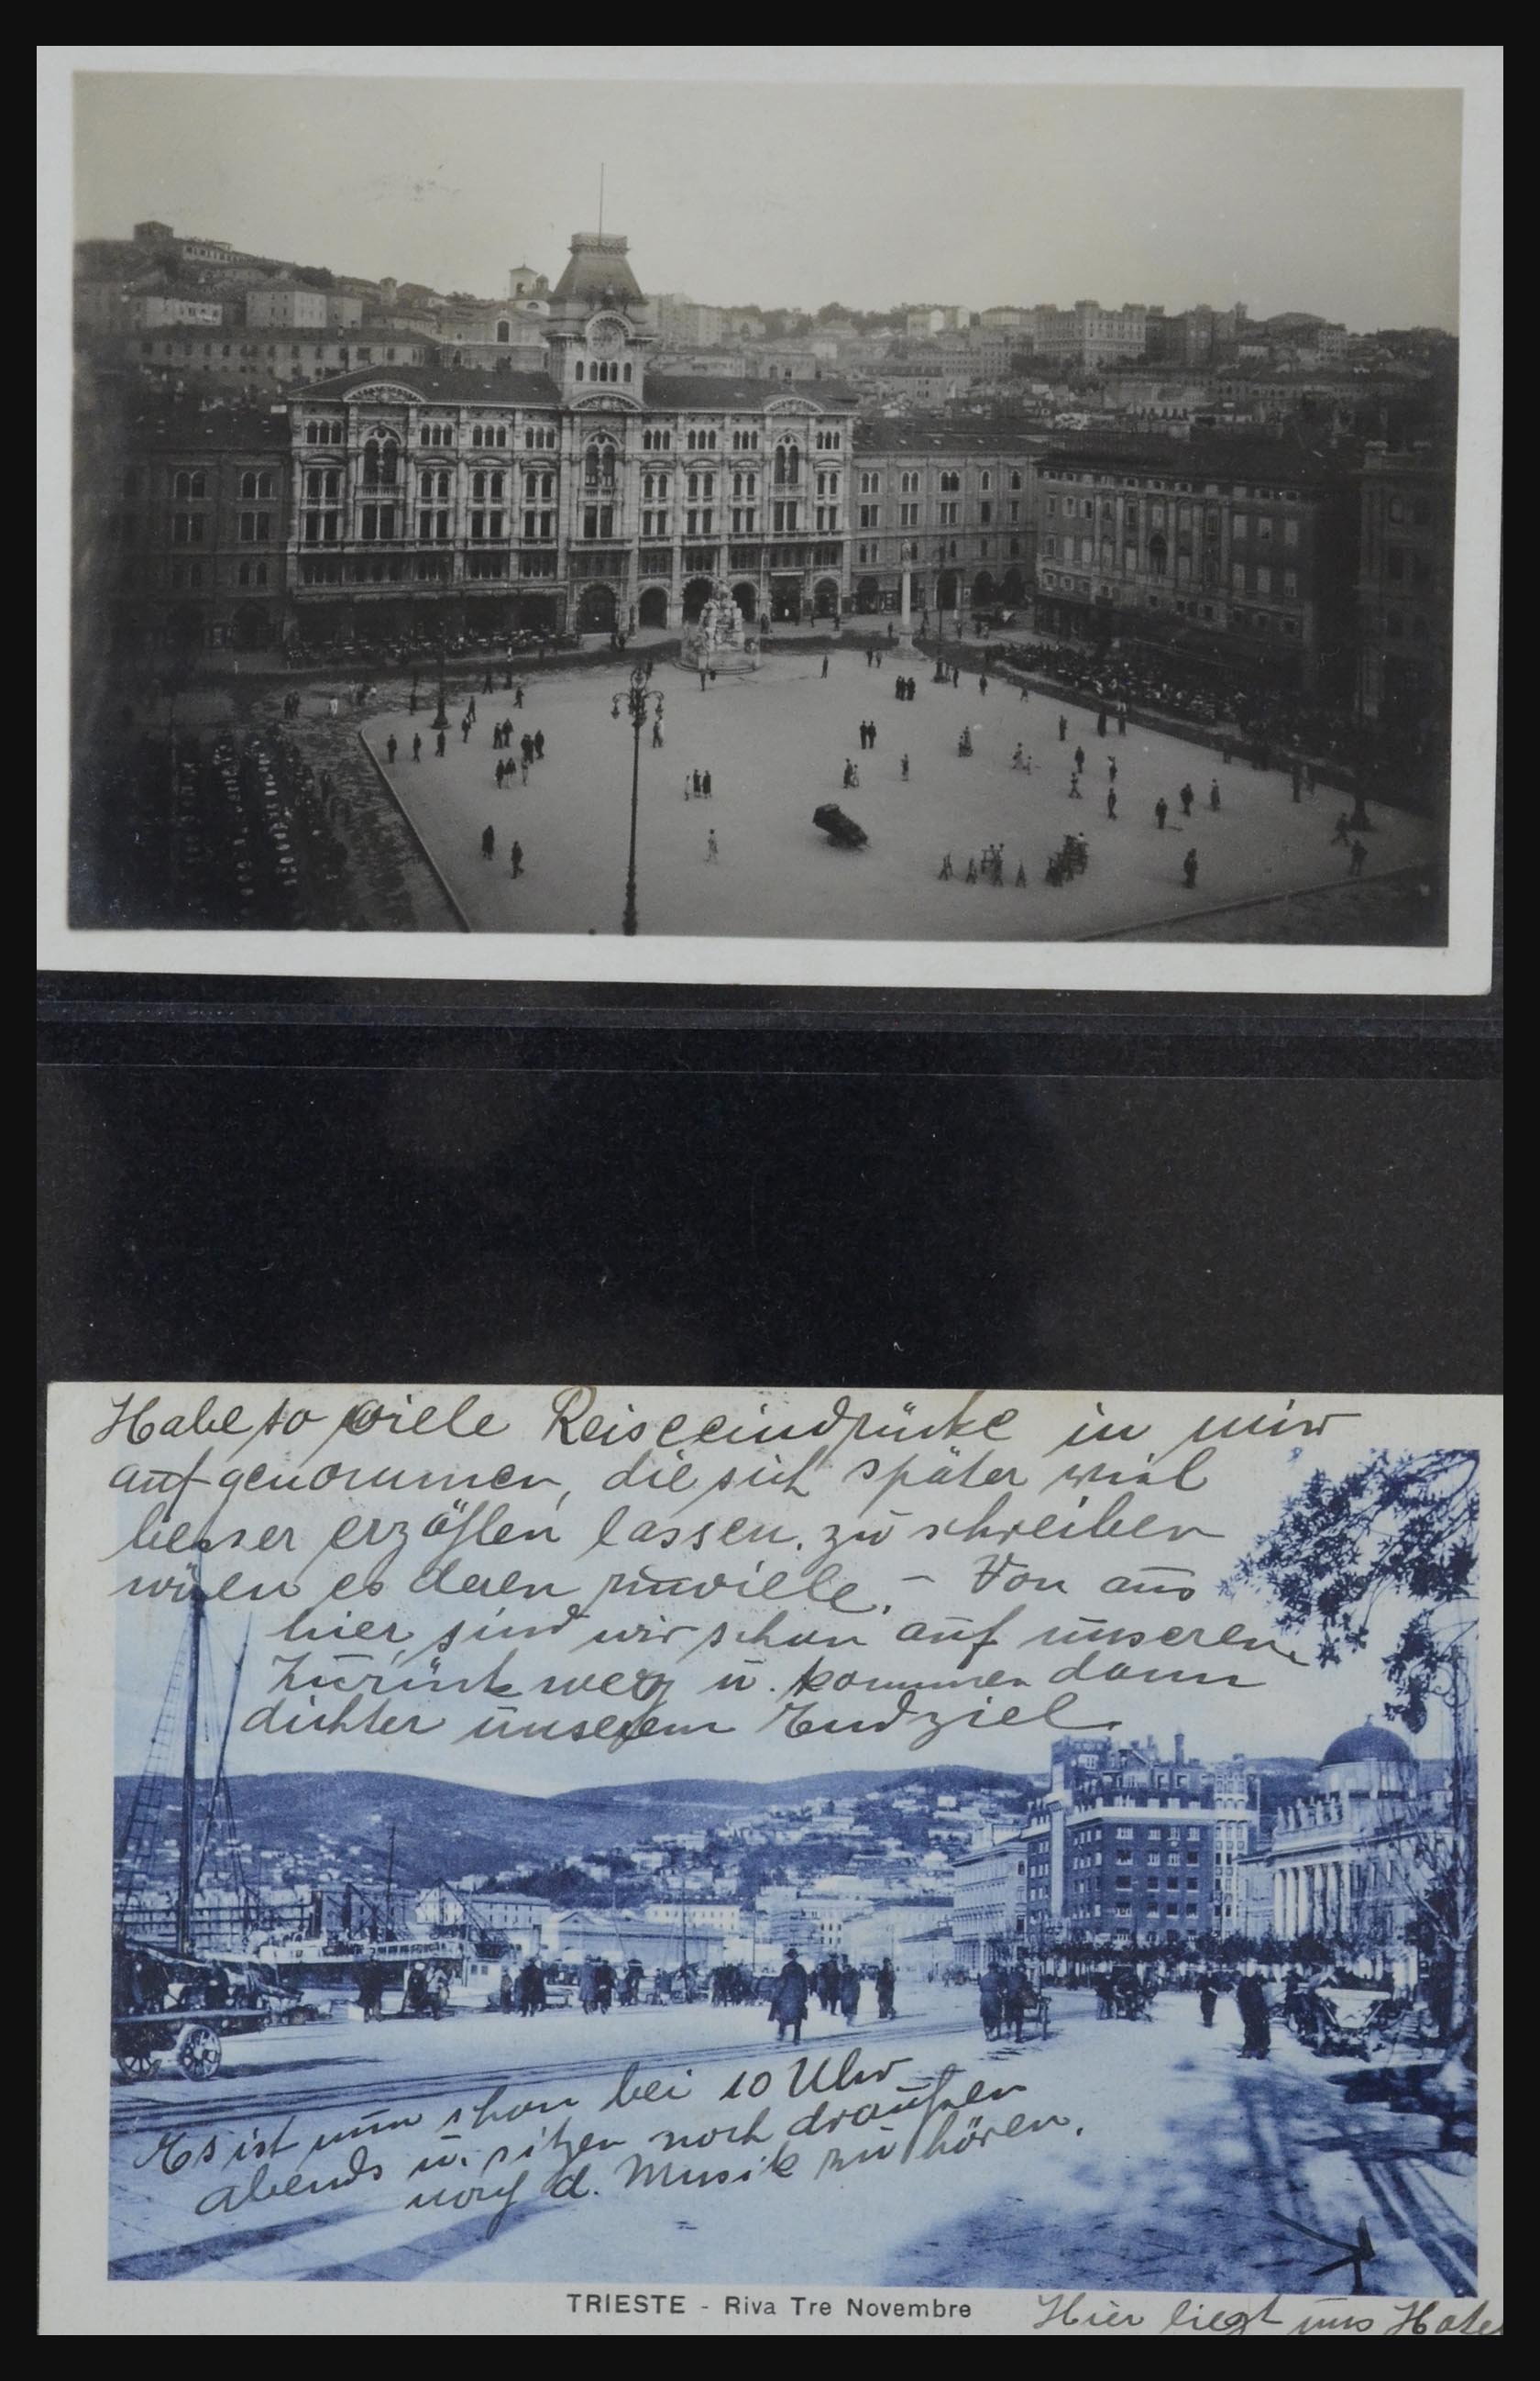 Habe so viele Reiseeindrücke in mir
aufgenommen, die sich später mal
besser erzählen lassen. zu schreiben
wären es deren zuviele. – Von aus
hier sind wir schon auf unseren
Zurückweg u. kommen dann
dichter unserem Endziel.
Es ist nun schon bei 10 Uhr
abends u. sitzen noch draußen
noch d. Musik zu hören.
TRIESTE - Riva Tre Novembre
Hier liegt uns Hotel